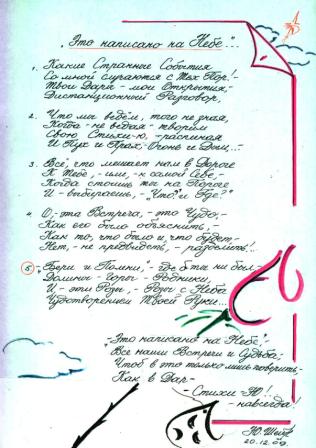 „Это написано на Небе"...
1. Какие Странные События
Со мной случаются с Тех Пор! -
Твои Дары - мои Открытия, -
Дистанционный Разговор,
2. Что мы ведём, того не зная,
Когда - не ведая - творим
Свою Стихи-ю, - распиная
И Пух и Прах, Огонь и Дым...
3. Всё, что мешает нам в Дороге
К Тебе, - к самой Себе, -
Когда стоишь ты на Пороге
И - выбираешь, - „Что" и „Где?"
4. О, - эта Встреча, - это Чудо, -
Как его было объяснить, -
Как то, что было и что будет -
Нет, - не предвидеть, - разделить!..
5. „Бери и Помни, - где б ты ни был -
Долины - Горы - Родники,
И - эти Розы, - Розы с Неба
Чудотворением Твоей Руки...
- „Это написано на Небе", -
Все наши Встречи и Судьба;
Чтоб в это только лишь поверить,
Как в Дар -
- Стихи - Ю! -
- навсегда!
20.12.09